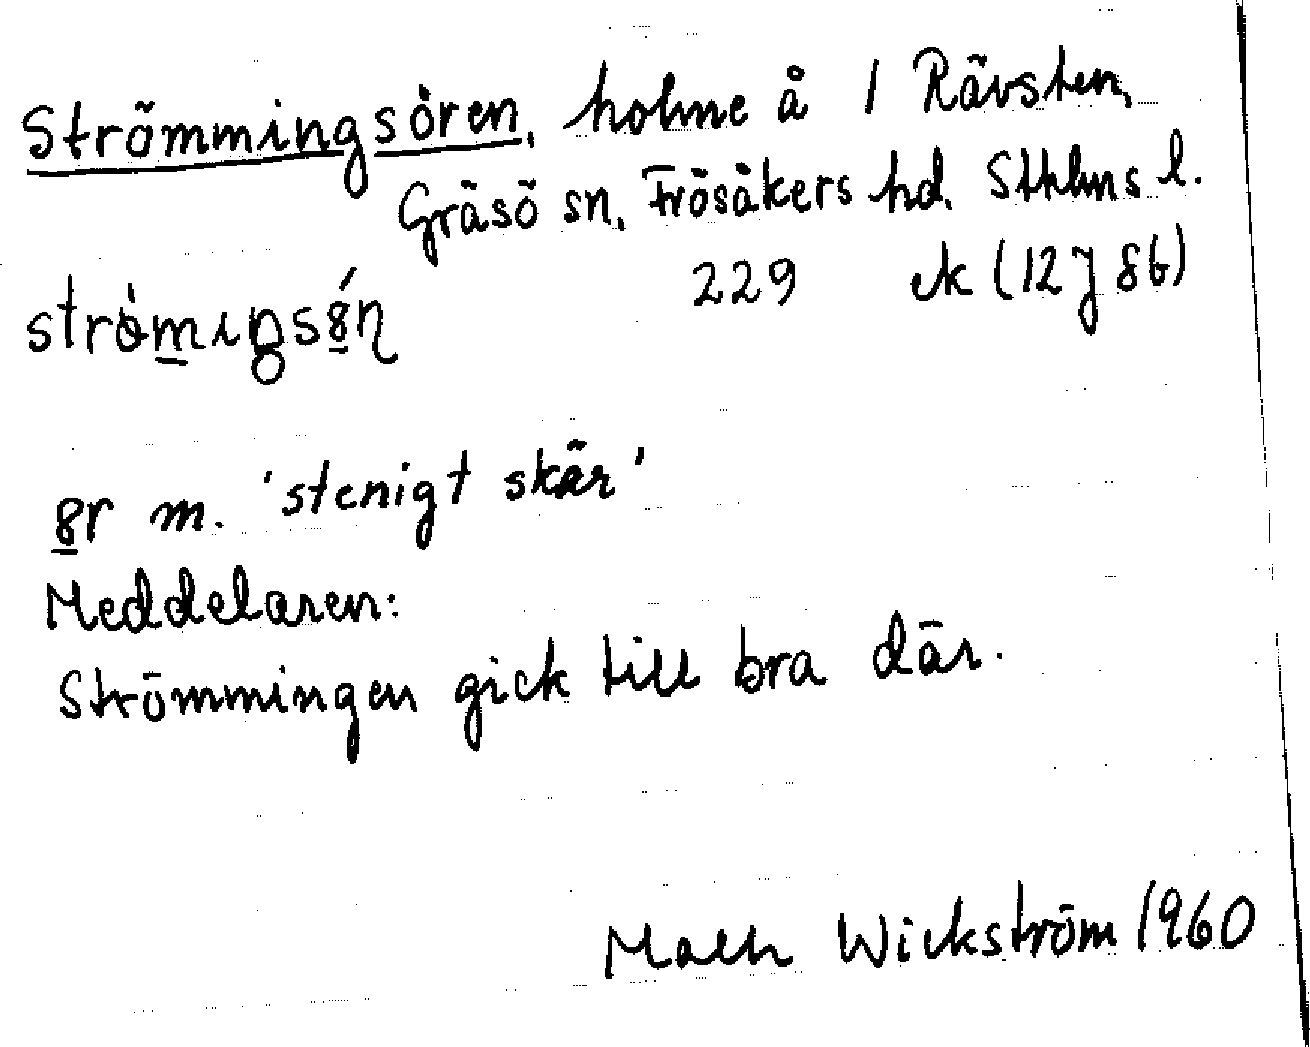 Strömmingsören, holme å 1 Rävsten,
Gräsö sn, Frösåkers hd. Sthlms l.
229 ek (12J8b)
'stenigt skär'
m.
Meddelaren:
Strömmingen gick till bra där.
Wickström 1960